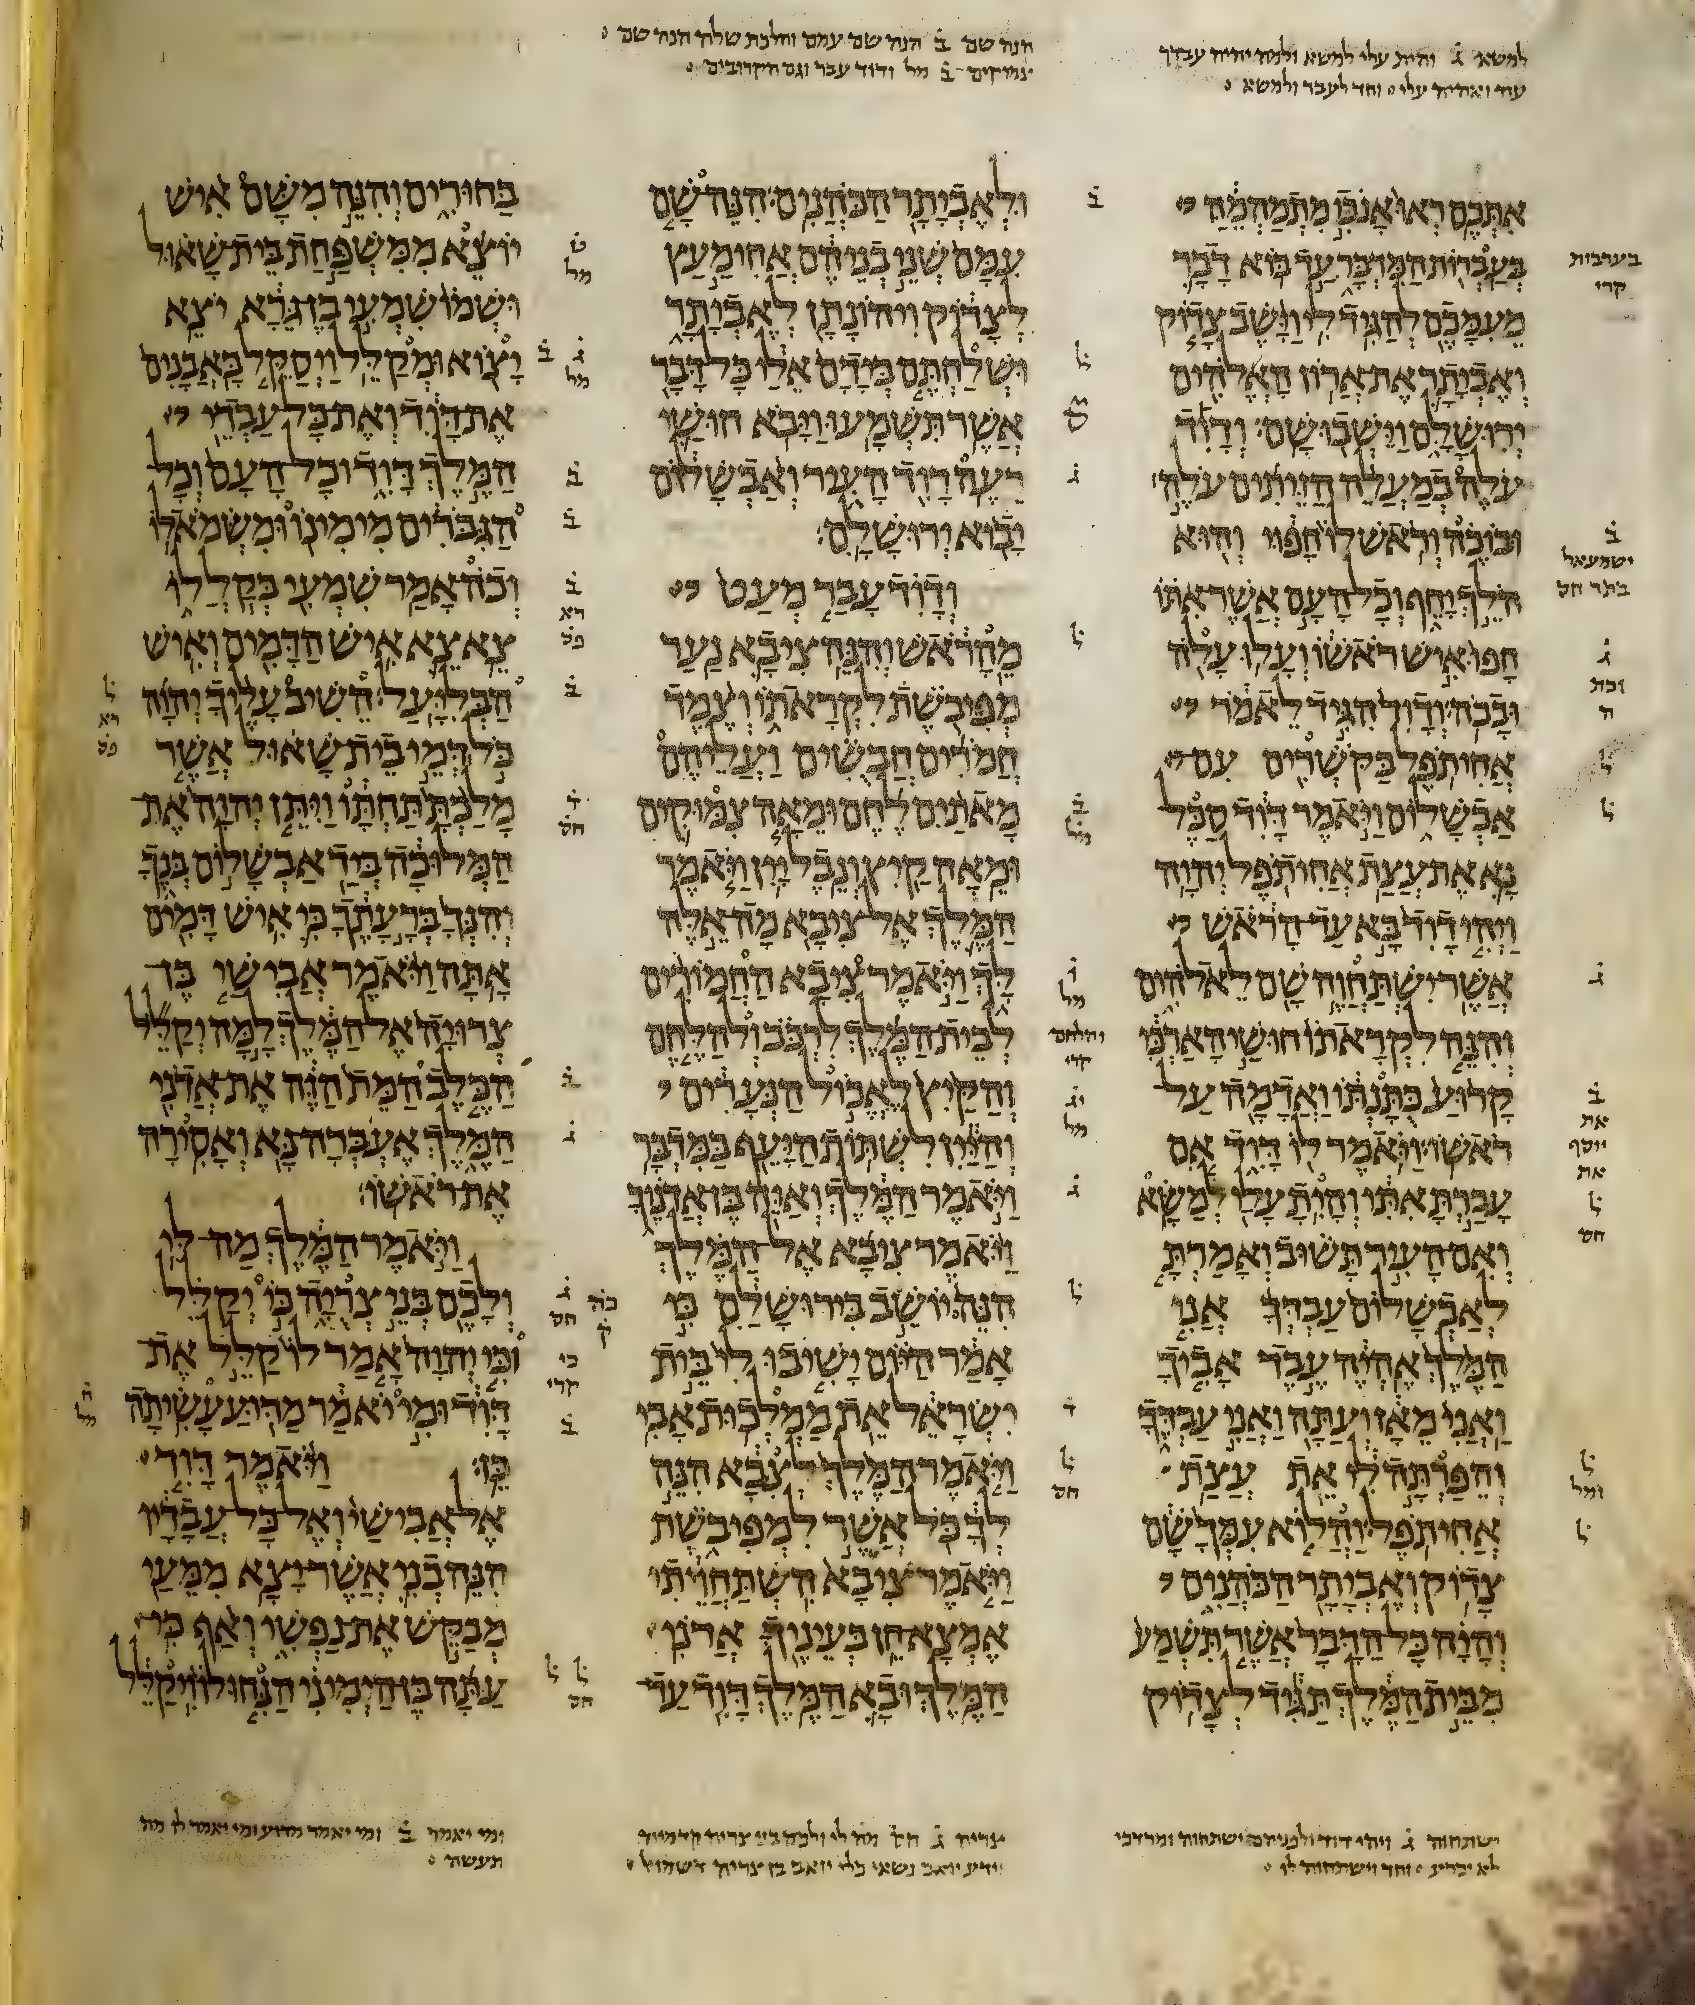 למשא ג̇ והית עלי למשא ולמה יהיה עבדך
עוד ואהיה עלי וחד לעבד ולמשא
הנה שם ב̇ הנה שם עמם וחלכת שלח הנה שם
ב̇ מל ודוד עבר וגם
אתכם ראו אנכי מתמהמה
בעברות המדבר עד בוא דבר
מעמכם להגיד לי וישב צדוק
ואביתר את ארון האלהים
ירושלם וישבו שם׃ ודוד
עלה במעלה הזיתים עלה
ובוכה וראש לו חפוי והוא
הלך יחף וכל העם אשר אתו
חפו איש ראשו ועלו עלה
ובכה׃ ודוד הגיד לאמר
אחיתפל בקשרים עם
אבשלום ויאמר דוד סכל
נא את עצת אחיתפל יהוה׃
ויהי דוד בא עד הראש
אשר ישתחוה שם לאלהים
והנה לקראתו חושי הארכי
קרוע כתנתו ואדמה על
ראשו׃ ויאמר לו דוד אם
עברת אתי והית עלי למשא׃
ואם העיר תשוב ואמרת
לאבשלום עבדך אני
המלך אהיה עבד אביך
ואני מאז ועתה ואני עבדך
והפרתה לי את עצת
אחיתפל׃ והלוא עמך שם
צדוק ואביתר הכהנים
והיה כל הדבר אשר תשמע
מבית המלך תגיד לצדוק
ולאביתר הכהנים׃ הנה שם
עמם שני בניהם אחימעץ
לצדוק ויהונתן לאביתר
ושלחתם בידם אלי כל דבר
אשר תשמעו׃ ויבא חושי
רעה דוד העיר ואבשלום
יבוא ירושלם׃
ודוד עבר מעט
מהראש והנה ציבא נער
מפיבשת לקראתו וצמד
חמרים חבשים ועליהם
מאתים לחם ומאה צמוקים
ומאה קיץ ונבל יין׃ ויאמר
המלך אל ציבא מה אלה
לך ויאמר ציבא החמורים
לבית המלך לרכב ולהלחם
והקיץ לאכול הנערים
והיין לשתות היעף במדבר׃
ויאמר המלך ואיה בן אדניך
ויאמר ציבא אל המלך
הנה יושב בירושלם כי
אמר היום ישיבו לי בית
ישראל את ממלכות אבי׃
ויאמר המלך לצבא הנה
לך כל אשר למפיבשת
ויאמר ציבא השתחויתי
אמצא חן בעיניך אדני
המלך׃ ובא המלך דוד עד
בחורים והנה משם איש
יוצא ממשפחת בית שאול
ושמו שמעי בן גרא יצא
יצוא ומקלל׃ ויסקל באבנים
את דוד ואת כל עבדי
המלך דוד וכל העם וכל
הגברים מימינו ומשמאלו׃
וכה אמר שמעי בקללו
צא צא איש הדמים ואיש
הבליעל׃ השיב עליך יהוה
כל דמי בית שאול אשר
מלכת תחתו ויתן יהוה את
המלוכה ביד אבשלום בנך
והנך ברעתך כי איש דמים
אתה׃ ויאמר אבישי בן
צרויה אל המלך למה יקלל
הכלב המת הזה את אדני
המלך אעברה נא ואסירה
את ראשו׃
ויאמר המלך מה לי
ולכם בני צרויה כי יקלל
וכי יהוה אמר לו קלל את
דוד ומי יאמר מדוע עשיתה
כן׃ ויאמר דוד
אל אבישי ואל כל עבדיו
הנה בני אשר יצא ממעי
מבקש את נפשי ואף כי
עתה בן הימיני הנחו לו ויקלל
בערבות
קרי
ישמעאל
בתר חס
והלחם
קרי
כה
ק
כי
קרי
ישתחוה ג̇ ויהי דוד ולבניהם ישתחוה ומרדכי
לא יכרע וחד וישתחוה לו
צריה ג̇ חס מה לי ולכם בני צריה קדמיה
וידע יואב נשאי כלי יואב בן צריה דשמואל
ומי יאמר ב̇ ומי יאמר מדוע ומי יאמר לו מה
תעשה